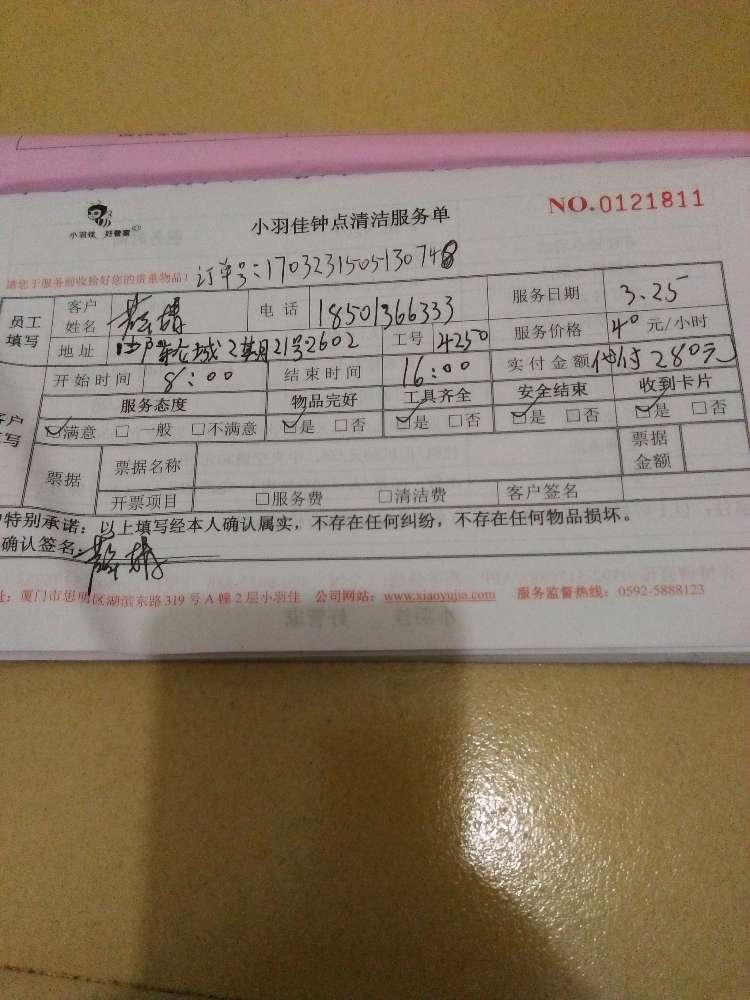 小羽佳 好管家
小羽佳钟点清洁服务单
NO.0121811
请您于服务前收捡好您的贵重物品!
订单号:1703231505130748
员工填写 客户姓名 电话 18501366333 服务日期 3.25
地址 2期21号2602 工号 4250 服务价格 40 元/小时
开始时间 8:00 结束时间 16:00 实付金额 付280元
服务态度 物品完好 工具齐全 安全结束 收到卡片
☑满意 □一般 □不满意 ☑是 □否 ☑是 □否 ☑是 □否 ☑是 □否
票据 票据名称 票据金额
开票项目 □服务费 □清洁费 客户签名
特别承诺:以上填写经本人确认属实,不存在任何纠纷,不存在任何物品损坏。
确认签名:
址:厦门市思明区湖滨东路319号A幢2层小羽佳 公司网站:www.xiaoyujia.com 服务监督热线:0592-5888123